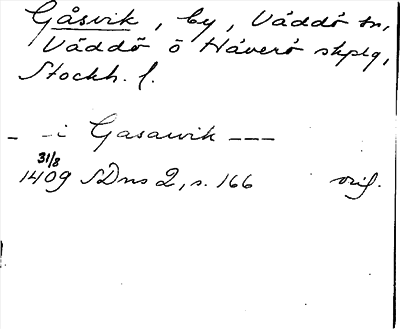 Gåsvik, by, Väddö sn,
Väddö o Häverö skplg,
Stockh. l.
- - i Gasawik ---
31/8
1409 SDns 2, s. 166 orig.